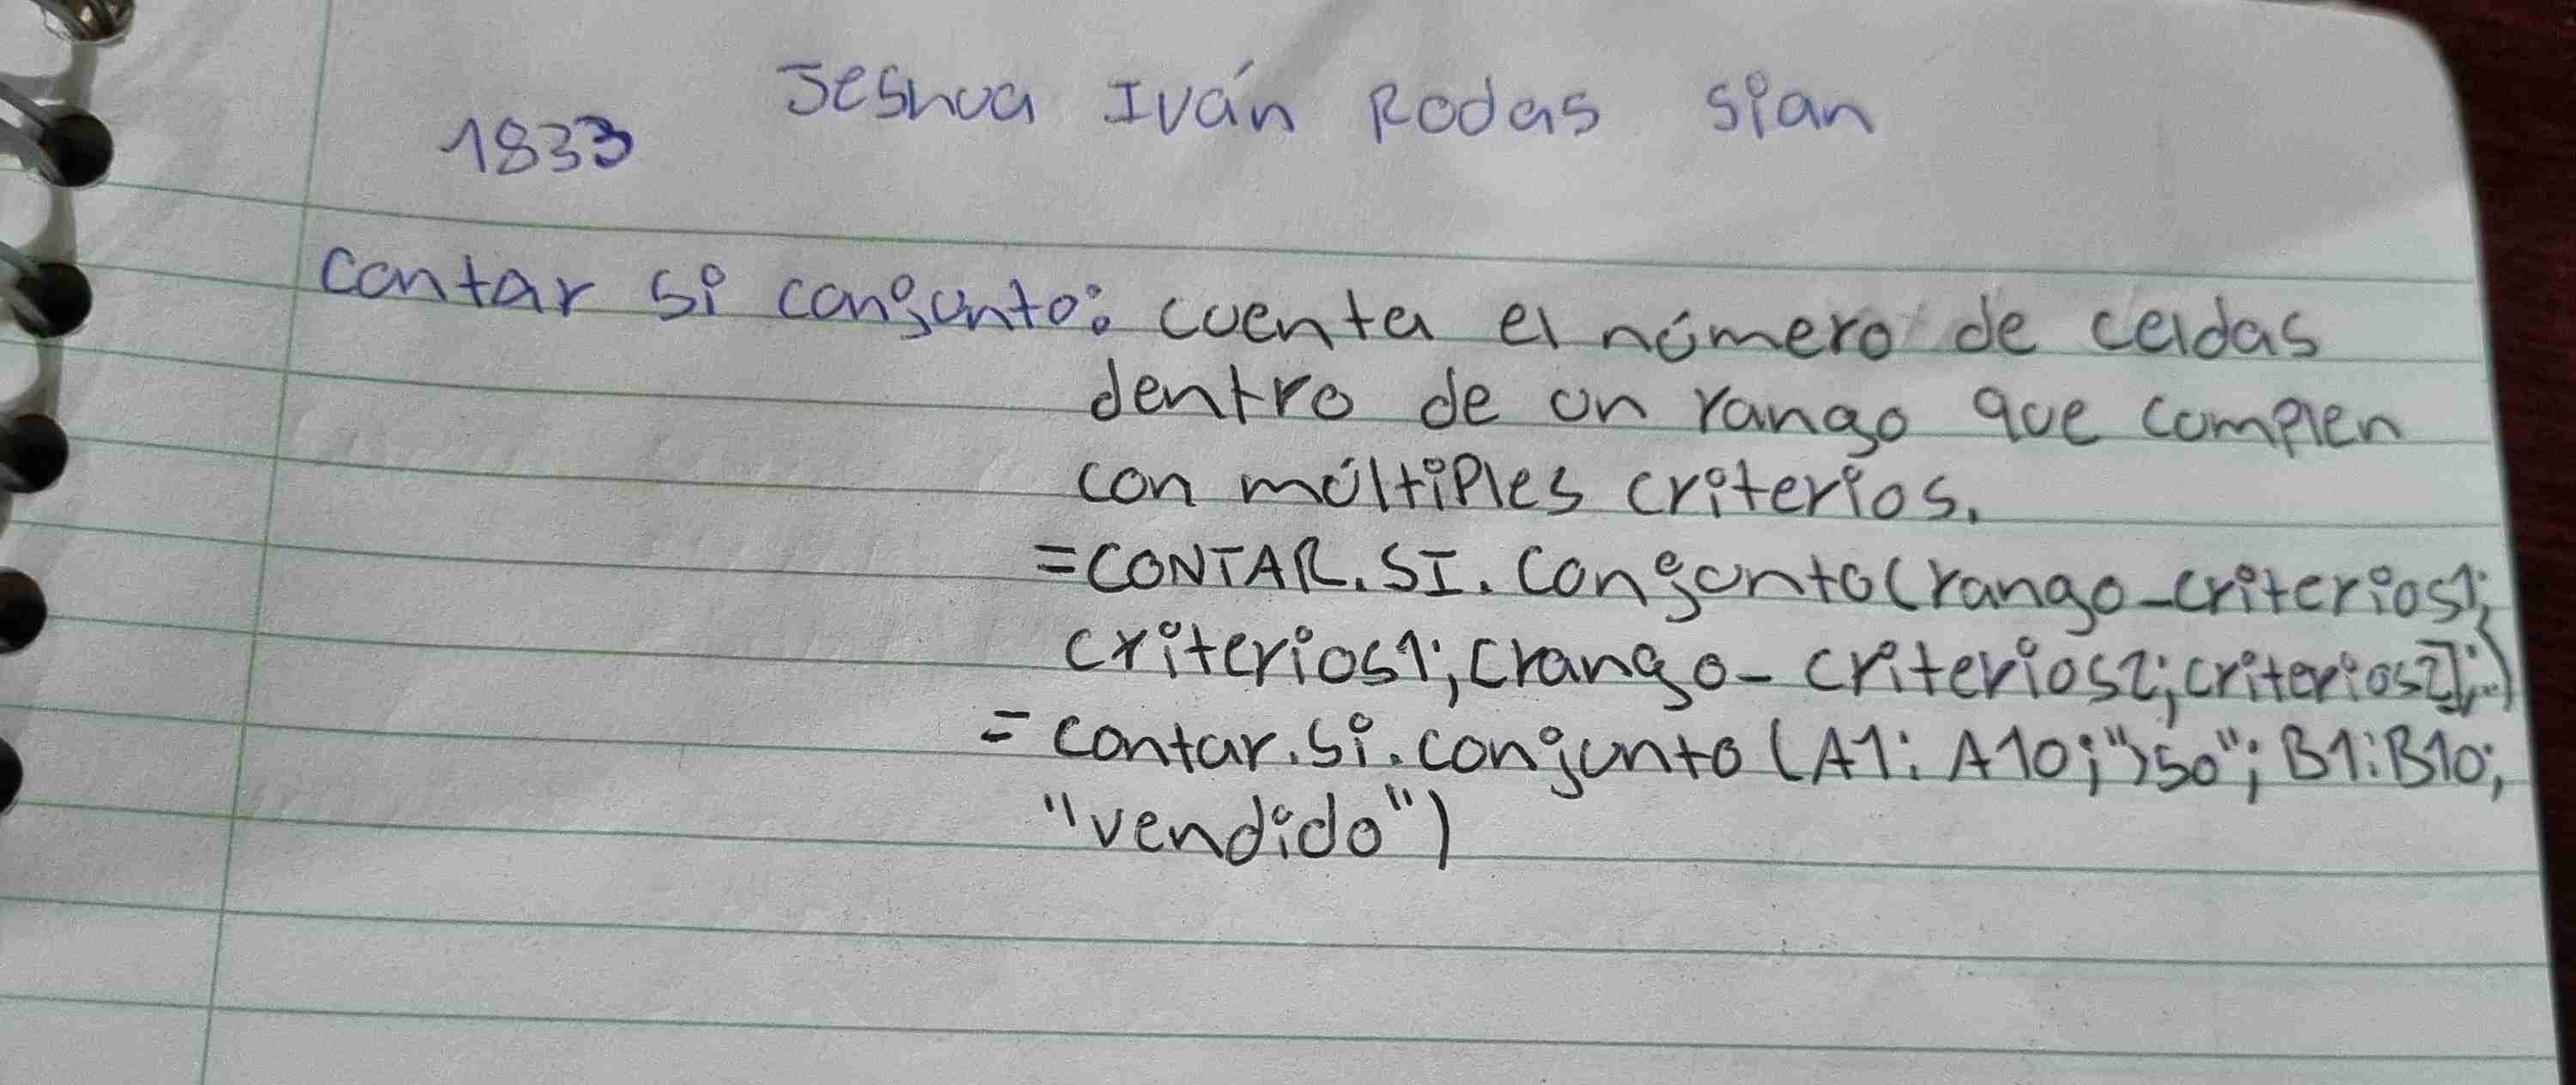 Jeshua Iván Rodas Sian
1833
Contar si conjunto: cuenta el número de celdas
dentro de un rango que complen
con múltiples criterios.
=CONTAR.SI.Conjunto(rango_criterios1;
criterios1;[rango_criterios2;criterios2];..)
=contar.si.conjunto(A1:A10;">50";B1:B10;
"vendido")